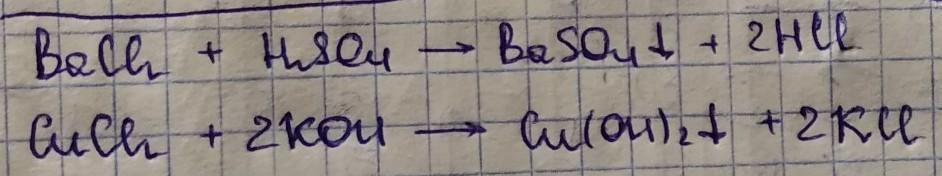 BaCl₂ + H₂SO₄ → BaSO₄↓ + 2HCl
CuCl₂ + 2KOH → Cu(OH)₂↓ + 2KCl